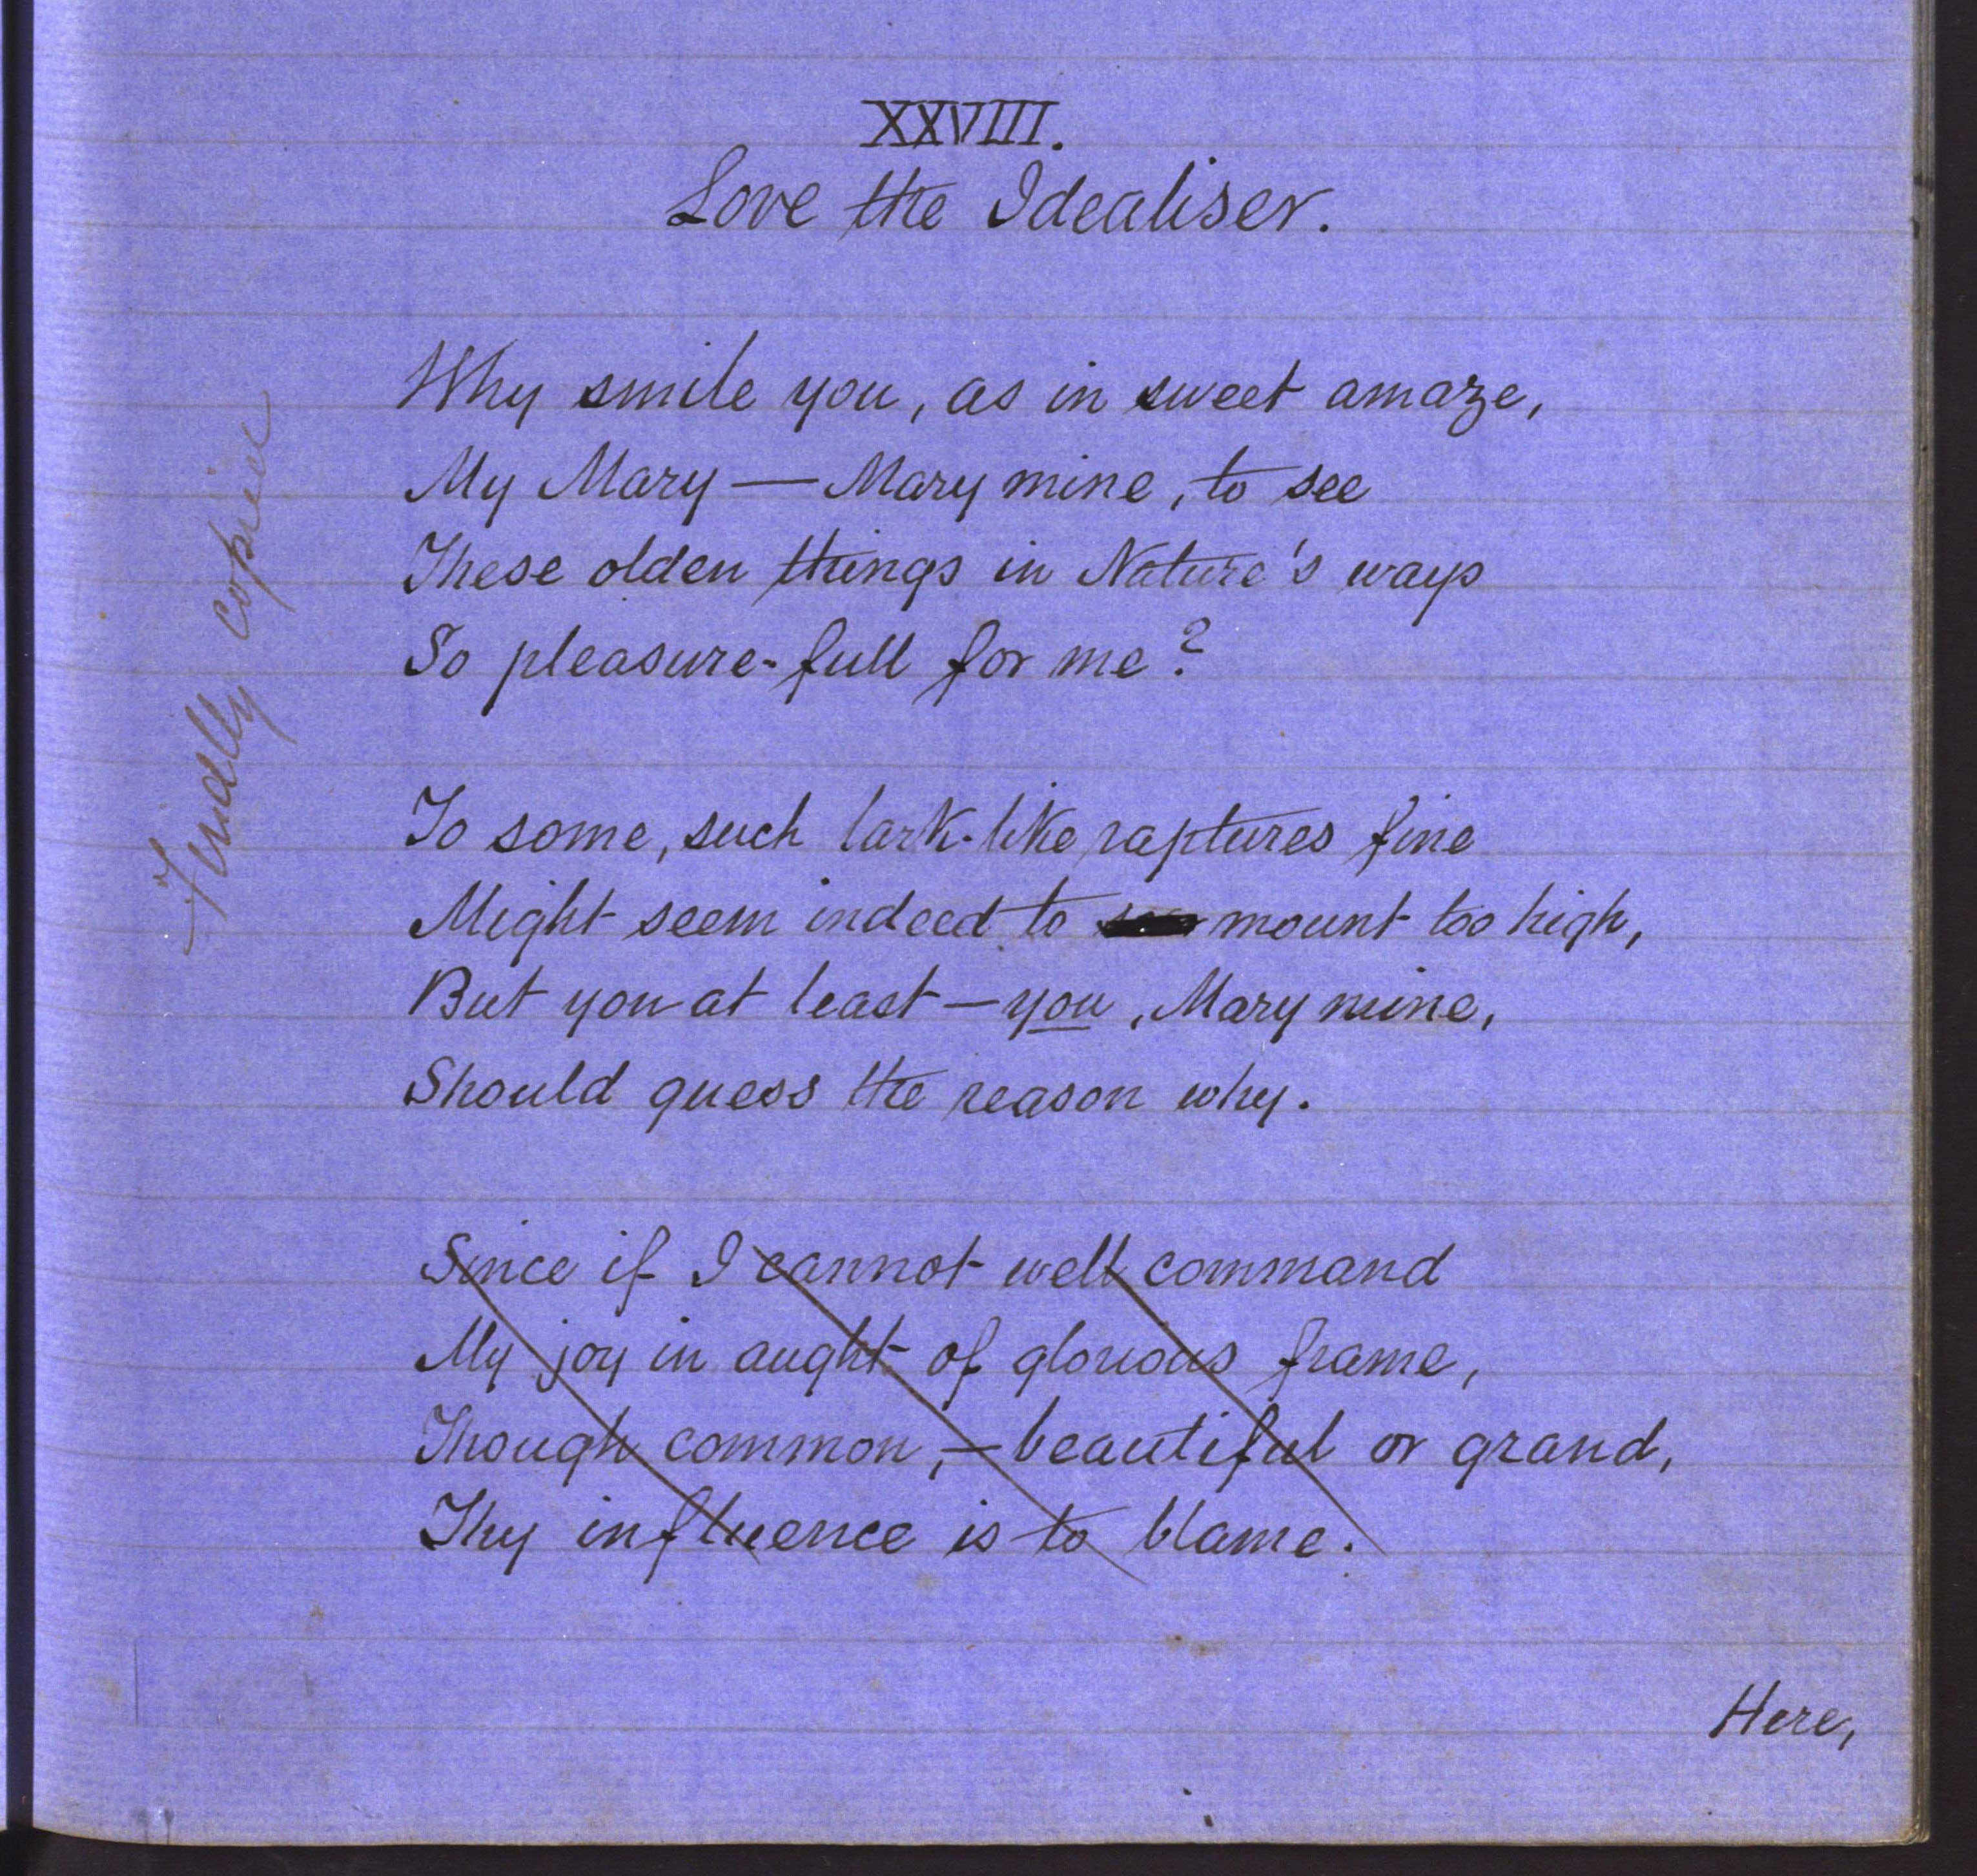 XXVIII.
Love the Idealiser.
Why smile you, as in sweet amaze,
My Mary — Mary mine, to see
These olden things in Nature's ways
So pleasure-full for me?
To some, such lark-like raptures fine
Might seem indeed to mount too high,
But you at least — you, Mary mine,
Should guess the reason why.
Since if I cannot well command
My joy in aught of glorious frame,
Though common, — beautiful or grand,
Thy influence is to blame.
Here,
Finally copied